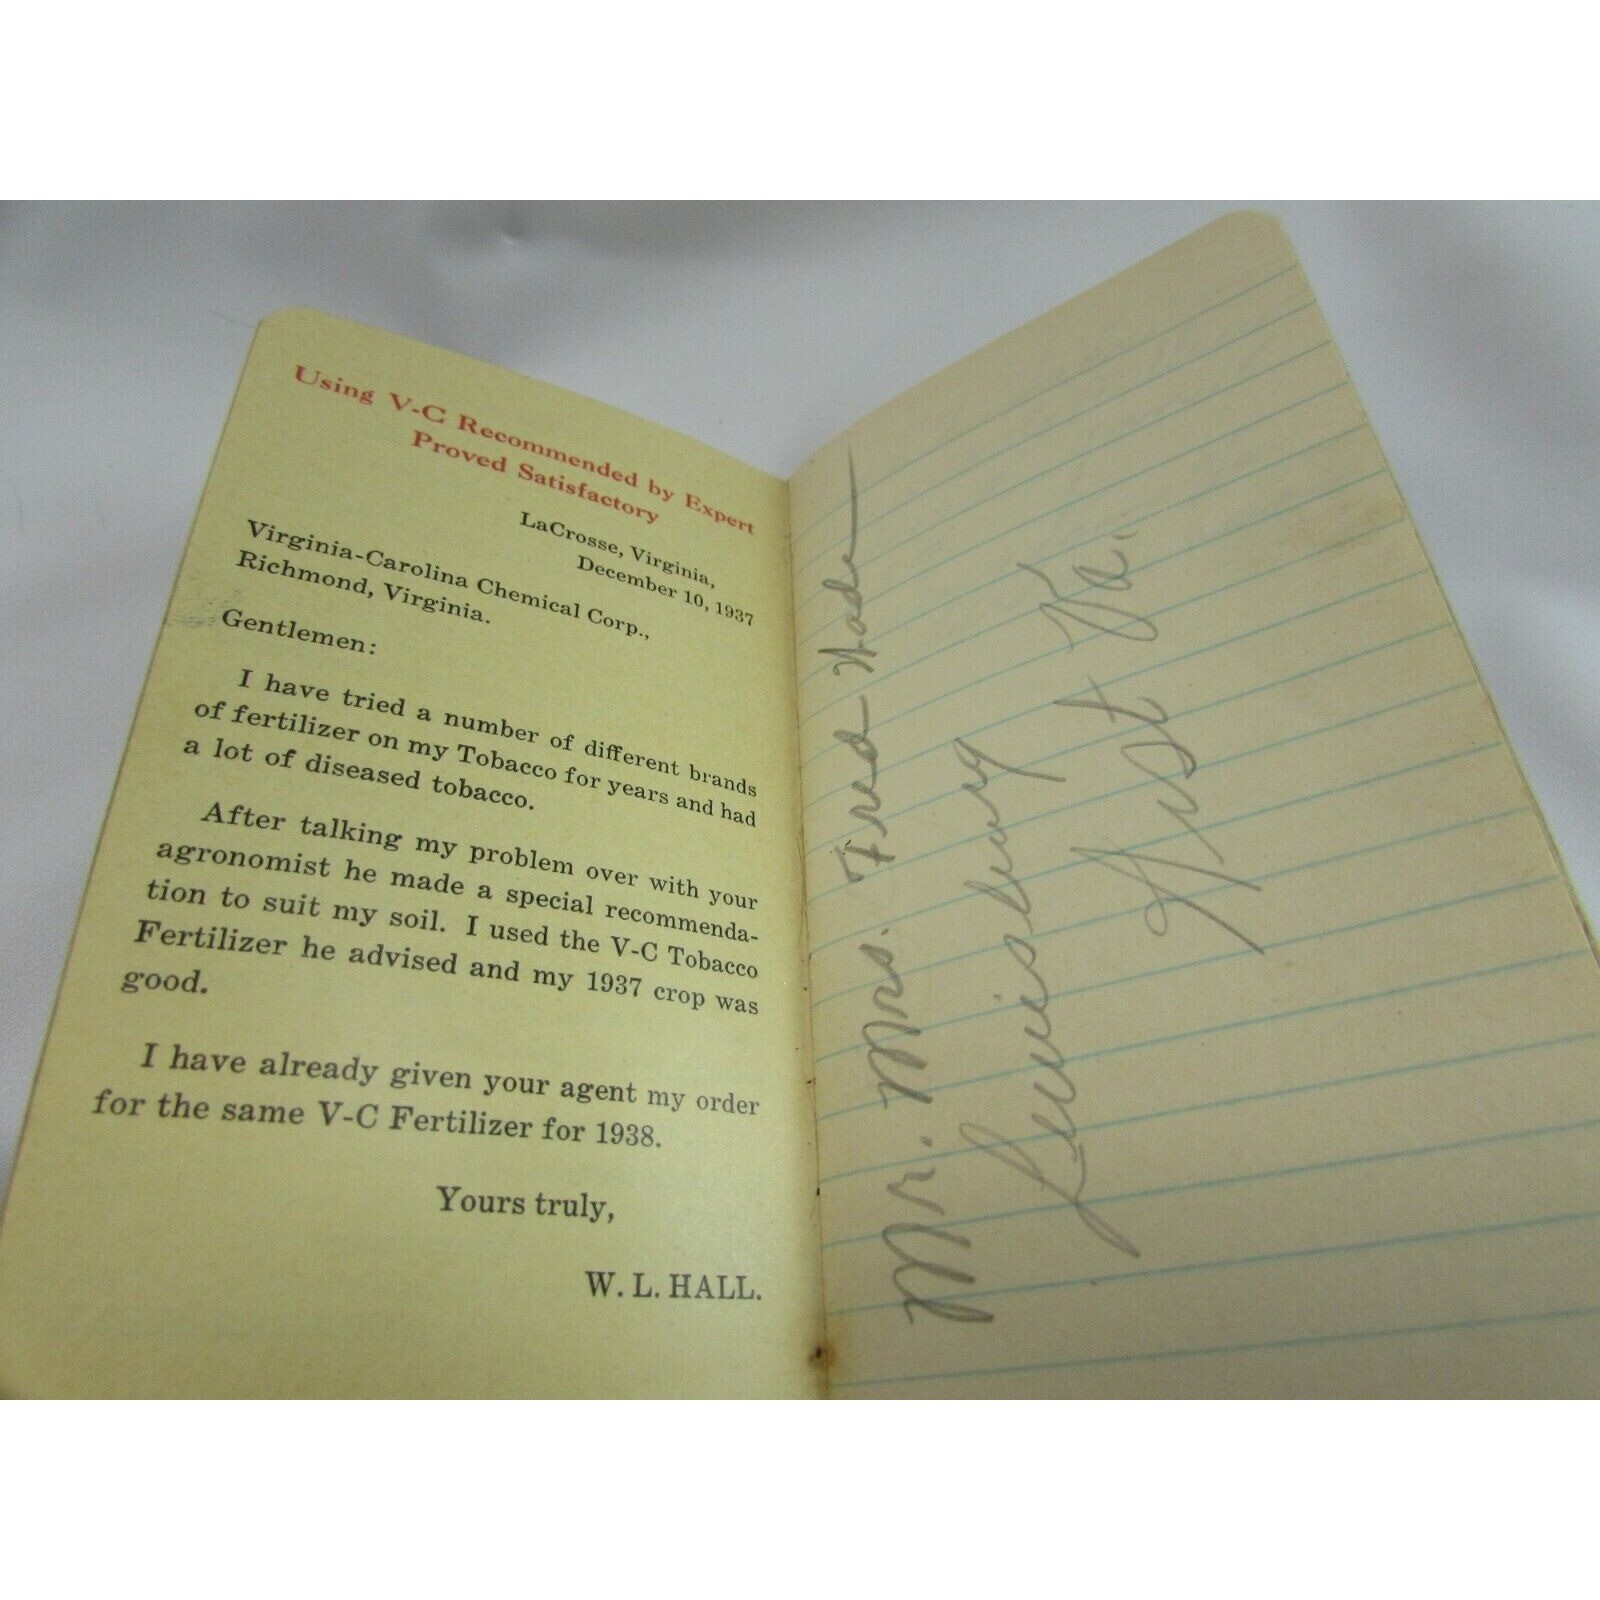 Using V-C Recommended by Expert
Proved Satisfactory
LaCrosse, Virginia,
December 10, 1937
Virginia-Carolina Chemical Corp.,
Richmond, Virginia.
Gentlemen:
I have tried a number of different brands
of fertilizer on my Tobacco for years and had
a lot of diseased tobacco.
After talking my problem over with your
agronomist he made a special recommenda-
tion to suit my soil. I used the V-C Tobacco
Fertilizer he advised and my 1937 crop was
good.
I have already given your agent my order
for the same V-C Fertilizer for 1938.
Yours truly,
W. L. HALL.
Mr. Mrs. Fred Wade
Lewisburg
West Va.